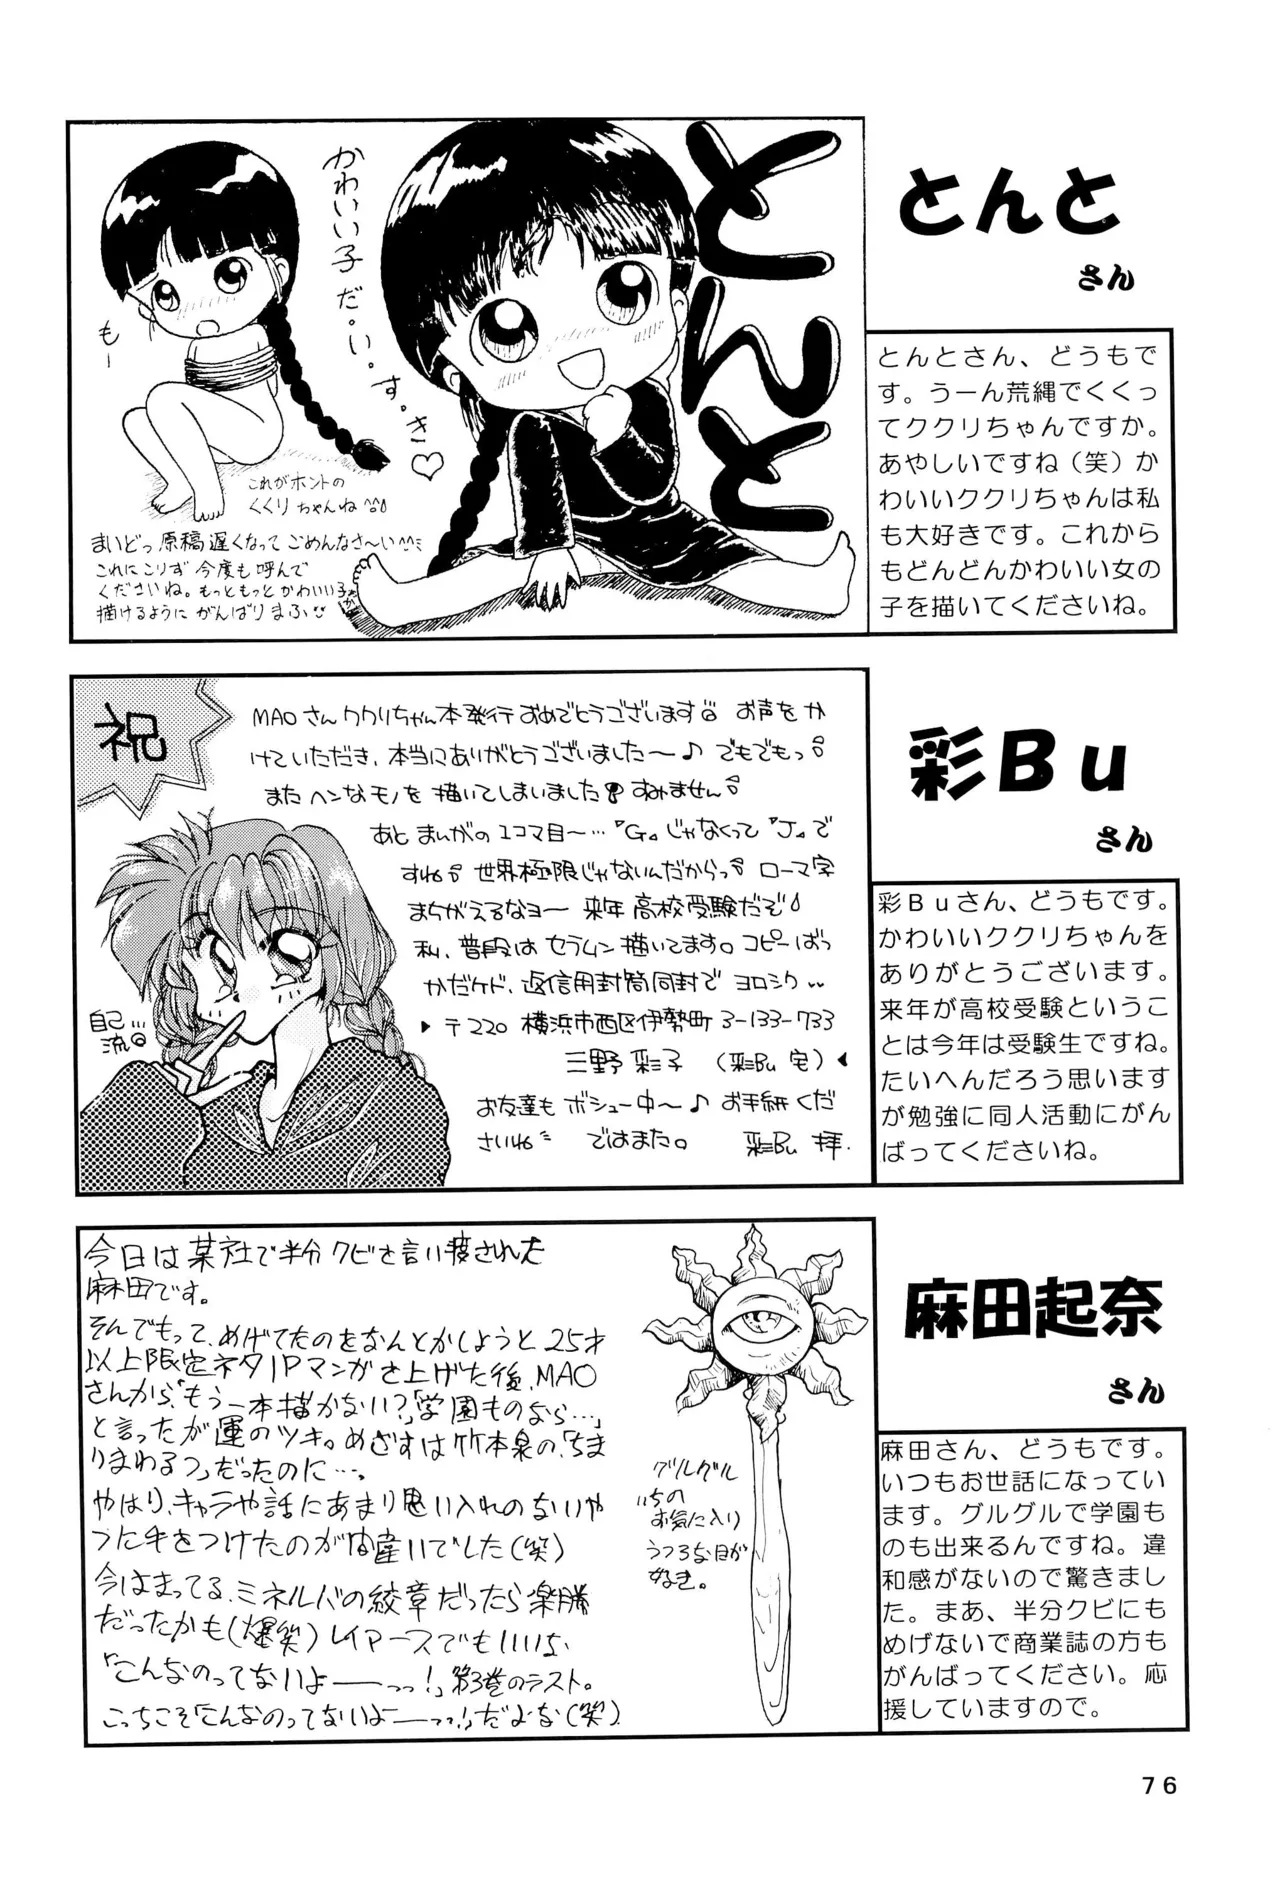 とんと
さん
かわいい子だ・い・す・き♡
とんと
もー
これがホントの
くくりちゃんね
まいどっ原稿遅くなってごめんなさ〜い
これにこりず今度も呼んで
くださいね。もっともっとかわいい子が
描けるようにがんばりまふ
とんとさん、どうもで
す。うーん荒縄でくくっ
てククリちゃんですか。
あやしいですね（笑）か
わいいククリちゃんは私
も大好きです。これから
もどんどんかわいい女の
子を描いてくださいね。
彩Ｂｕ
さん
祝
MAOさんククリちゃん本発行おめでとうございます お声をか
けていただき、本当にありがとうございました〜♪ でもでもっ
またヘンなモノを描いてしまいました すみません
あとまんがの1コマ目〜…『G』じゃなくって『J』で
すね 世界極限じゃないんだからっ ローマ字
まちがえるなヨー 来年高校受験だぞ
私、普段はセラムン描いてます。コピーばっ
かだケド、返信用封筒同封でヨロシク
お友達もボシュー中〜♪ お手紙くだ
さいね ではまた。 彩Bu 拝.
自己…
流
彩Ｂｕさん、どうもです。
かわいいククリちゃんを
ありがとうございます。
来年が高校受験というこ
とは今年は受験生ですね。
たいへんだろう思います
が勉強に同人活動にがん
ばってくださいね。
麻田起奈
さん
今日は某社で半分クビを言い渡された
麻田です。
そんでもって、めげてたのをなんとかしようと25才
以上限定ネタ1Pマンガを上げた後、MAO
さんから、「もう一本描かない?」「学園ものなら…」
と言ったが運のツキ。めざすは竹本泉の、「ちま
りまわるつ」だったのに…。
やはり、キャラや話にあまり思い入れのないや
つに手をつけたのが間違いでした(笑)
今はまってる、ミネルバの紋章だったら楽勝
だったかも(爆笑) レイアースでもいいな
「こんなのってないよ――っっ!」第3巻のラスト。
こっちこそ「こんなのってないよ――っっ!」だよな(笑)
グルグル
いちの
お気に入り
うつろな目が
好き。
麻田さん、どうもです。
いつもお世話になってい
ます。グルグルで学園も
のも出来るんですね。違
和感がないので驚きまし
た。まあ、半分クビにも
めげないで商業誌の方も
がんばってください。応
援していますので。
76